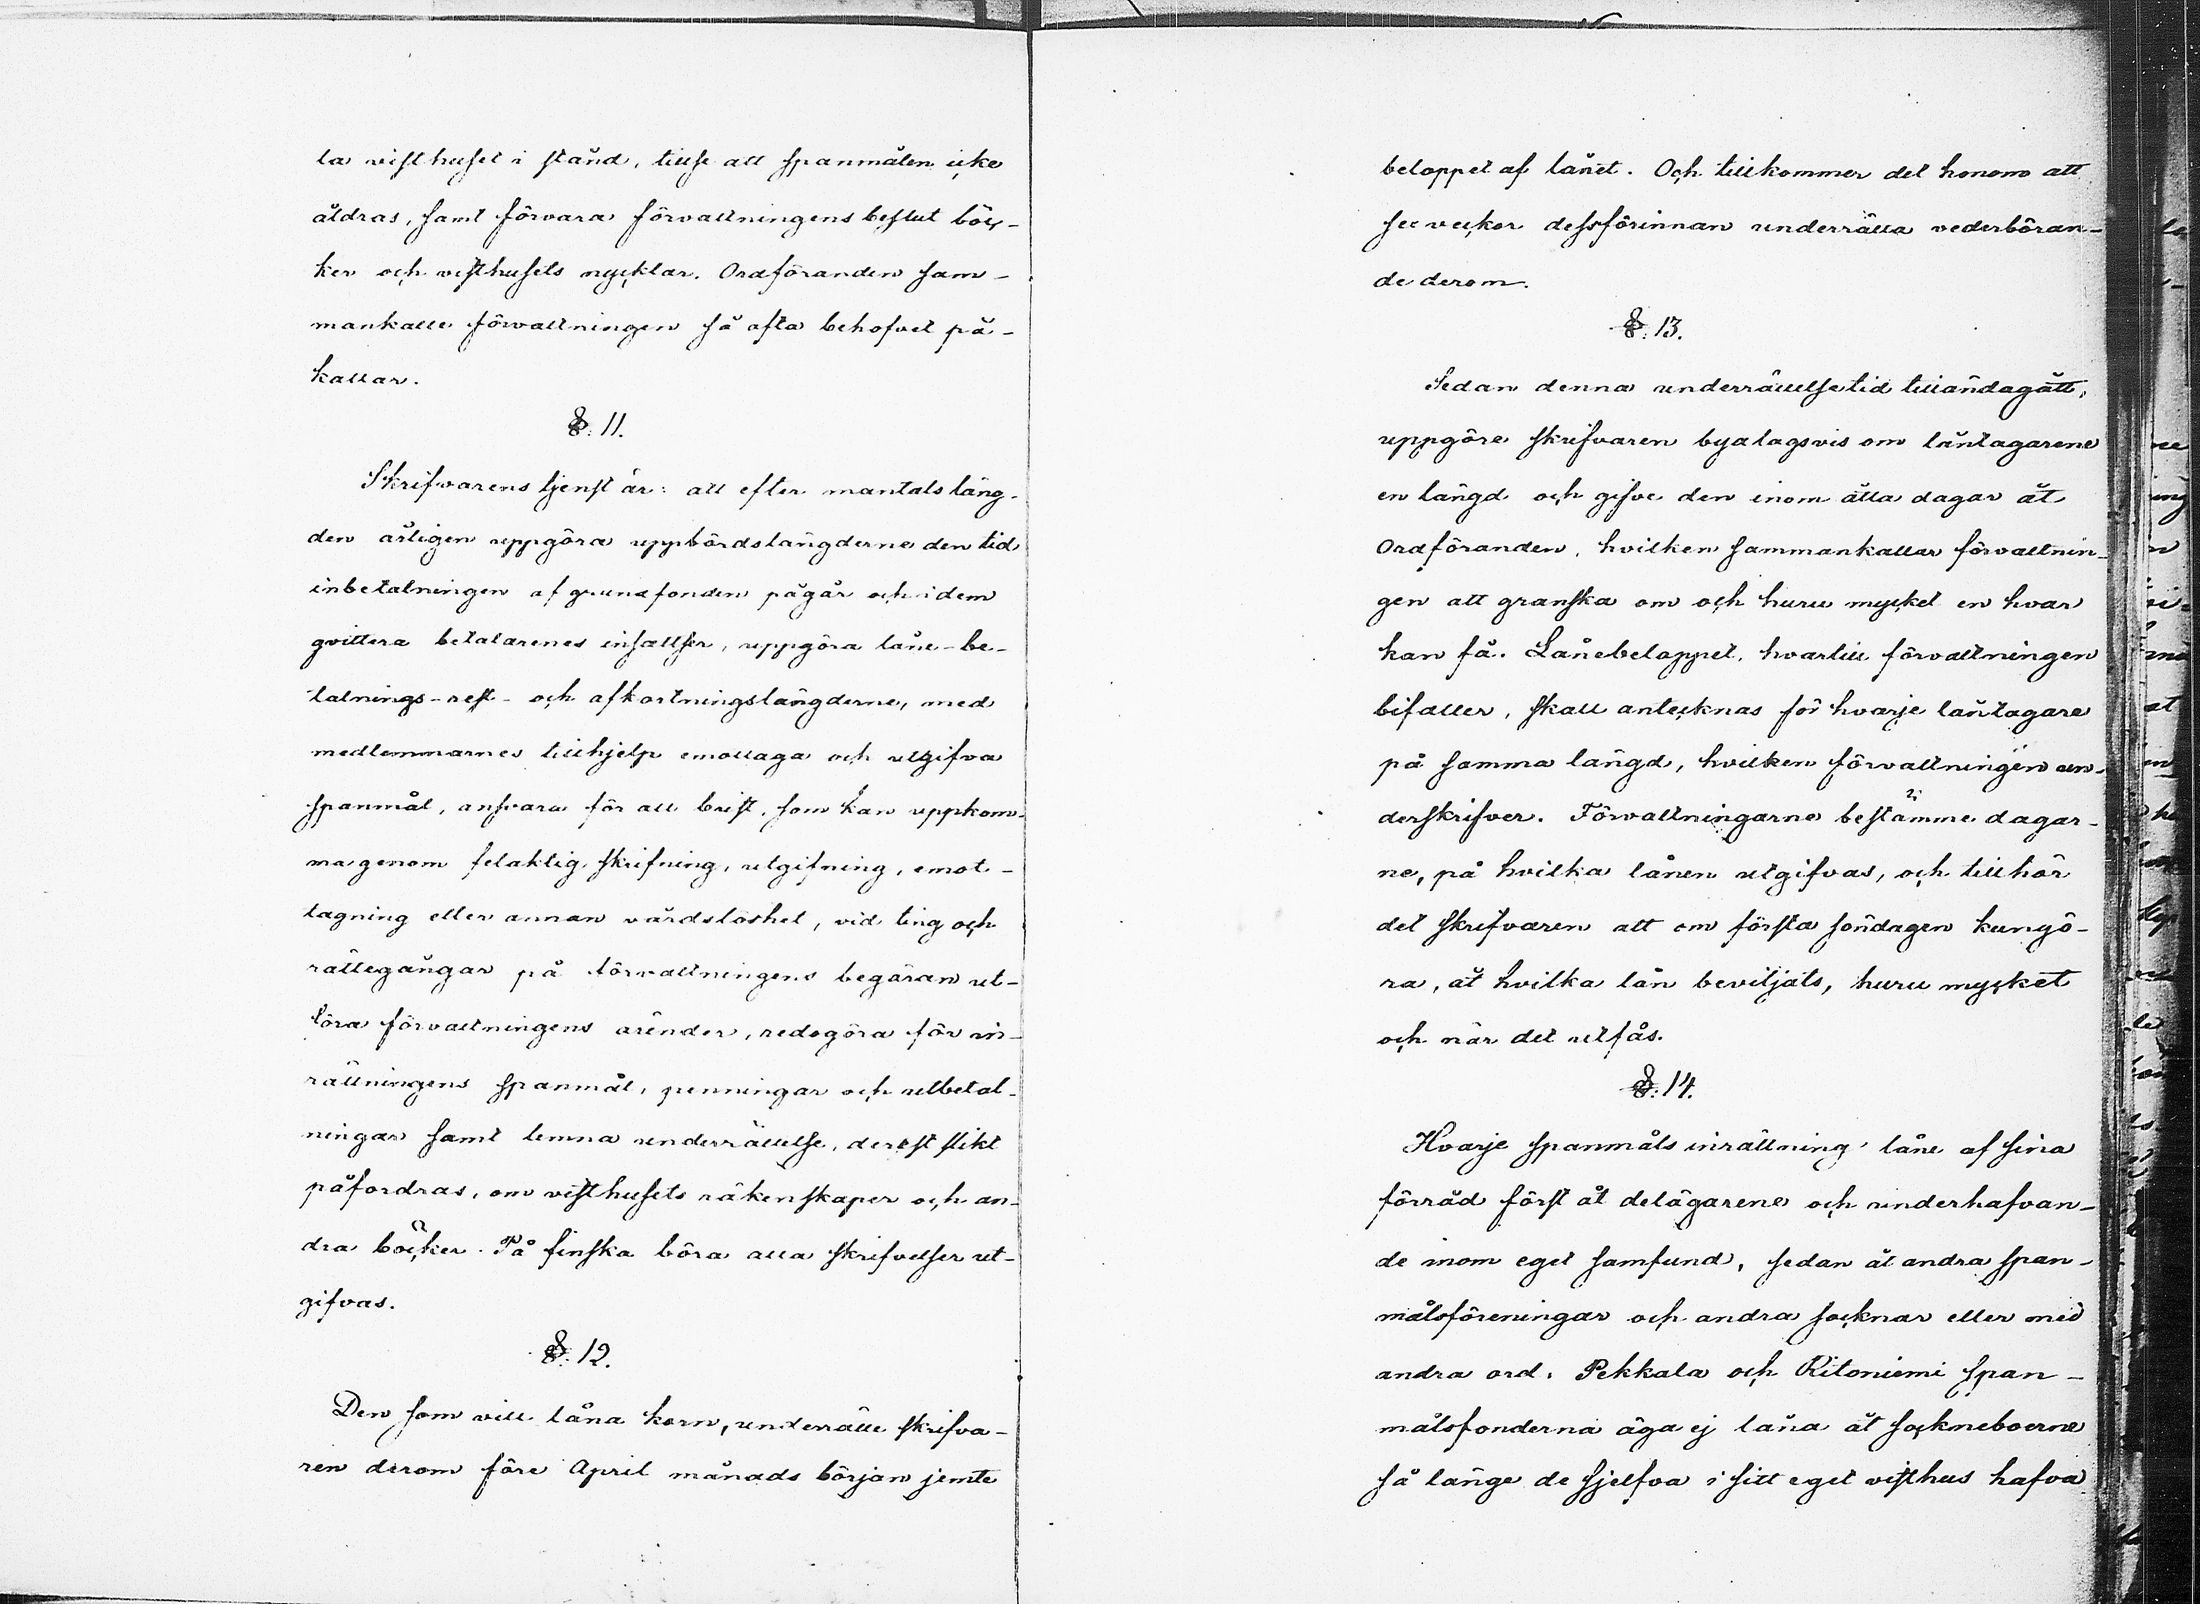 la visthuset i stånd, tillse att spanmålen icke
åldras, samt förvara förvaltningens beslut böc-
ker och visthusets nycklar. Ordföranden sam-
mankalle förvaltningen så ofta behofvet på-
kallar.
§. 11.
Skrifvarens tjenst är: att efter mantalsläng-
den årligen uppgöra uppbördslängderne den tid
inbetalningen af grundfonden pågår och i dem
qvittera betalarenes insattser, uppgöra låne-be-
talnings-rest- och afkortningslängderne, med
medlemmarnes tillhjelp emottaga och utgifva
spanmål, ansvara för all brist, som kan uppkom-
ma genom felaktig skrifning, utgifning, emot-
tagning eller annan vårdslöshet, vid ting och
rättegångar på förvaltningens begäran ut-
föra förvaltningens ärender, redogöra för in-
rättningens spanmål, penningar och utbetal-
ningar samt lemna underrättelse, derest slikt
påfordras, om visthusets räkenskaper och an-
dra böcker. På finska böra alla skrifvelser ut-
gifvas.
§. 12.
Den som vill låna korn, underrätte skrifva-
ren derom före April månads början jemte
beloppet af lånet. Och tillkommer det honom att
sex veckor dessförinnan underrätta vederböran-
de derom.
§. 13.
Sedan denna underrättelsetid tilländagått,
uppgöre skrifvaren byalagsvis om låntagarene
en längd och gifve den inom åtta dagar åt
Ordföranden, hvilken sammankallar förvaltnin-
gen att granska om och huru mycket en hvar
kan få. Lånebeloppet, hvartill förvaltningen
bifaller, skall antecknas för hvarje låntagare
på samma längd, hvilken förvaltningen un-
derskrifver. Förvaltningarne bestämme dagar-
ne, på hvilka lånen utgifvas, och tillhör
det skrifvaren att om första söndagen kungö-
ra, åt hvilka lån beviljats, huru mycket
och när det utfås.
§. 14.
Hvarje spanmåls inrättning låne af sina
förråd först åt delägarene och underhafvan-
de inom eget samfund, sedan åt andra span-
målsföreningar och andra socknar eller med
andra ord. Pekkala och Ritoniemi span-
målsfonderna äga ej låna åt sockneboerne
så länge de sjelfva i sitt eget visthus hafva